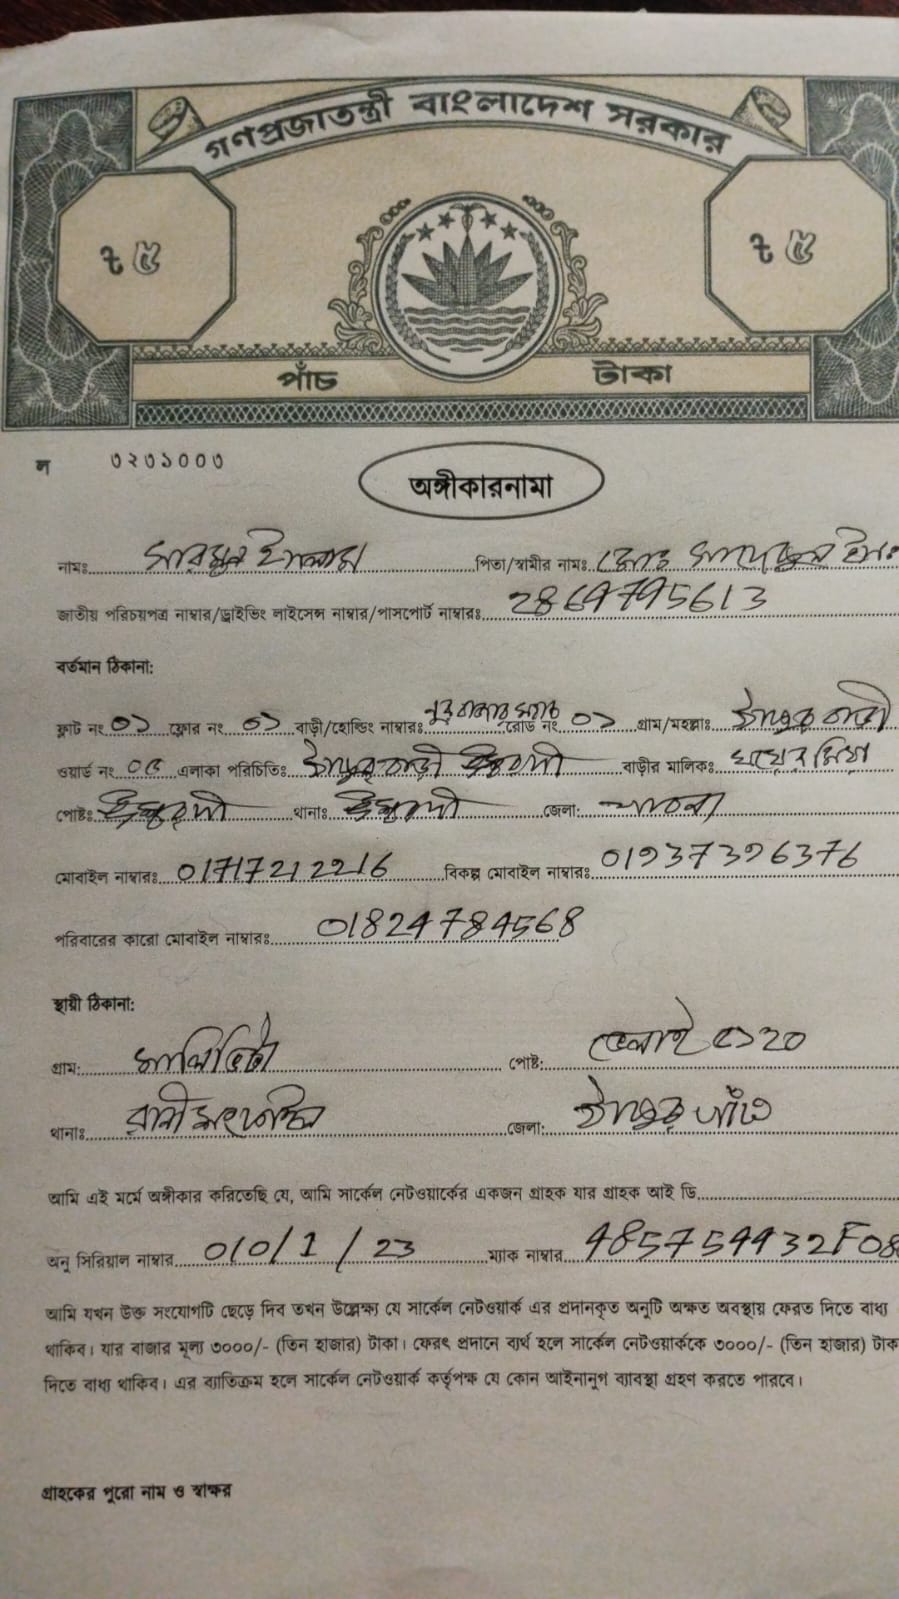 গণপ্রজাতন্ত্রী বাংলাদেশ সরকার
৳ ৫ ৳ ৫
পাঁচ টাকা
ল ৩২৩১০০৩
অঙ্গীকারনামা
নামঃ ইসলাম পিতা/স্বামীর নামঃ মোঃ
জাতীয় পরিচয়পত্র নাম্বার/ড্রাইভিং লাইসেন্স নাম্বার/পাসপোর্ট নাম্বারঃ 2869795613
বর্তমান ঠিকানা:
ফ্লাট নং ০১ ফ্লোর নং ০১ বাড়ী/হোল্ডিং নাম্বারঃ রোড নং ০১ গ্রাম/মহল্লাঃ
ওয়ার্ড নং ০৫ এলাকা পরিচিতিঃ ঈশ্বরদী বাড়ীর মালিকঃ
পোষ্টঃ ঈশ্বরদী থানাঃ ঈশ্বরদী জেলা: পাবনা
মোবাইল নাম্বারঃ 01717212216 বিকল্প মোবাইল নাম্বারঃ
পরিবারের কারো মোবাইল নাম্বারঃ 01824784568
স্থায়ী ঠিকানা:
গ্রাম: পোষ্ট: ৫১২০
থানাঃ রানীশংকৈল জেলা: ঠাকুরগাঁও
আমি এই মর্মে অঙ্গীকার করিতেছি যে, আমি সার্কেল নেটওয়ার্কের একজন গ্রাহক যার গ্রাহক আই ডি
অনু সিরিয়াল নাম্বার 010/1/23 ম্যাক নাম্বার
আমি যখন উক্ত সংযোগটি ছেড়ে দিব তখন উল্লেক্ষ্য যে সার্কেল নেটওয়ার্ক এর প্রদানকৃত অনুটি অক্ষত অবস্থায় ফেরত দিতে বাধ্য
থাকিব। যার বাজার মূল্য ৩০০০/- (তিন হাজার) টাকা। ফেরৎ প্রদানে ব্যর্থ হলে সার্কেল নেটওয়ার্ককে ৩০০০/- (তিন হাজার) টাক
দিতে বাধ্য থাকিব। এর ব্যতিক্রম হলে সার্কেল নেটওয়ার্ক কর্তৃপক্ষ যে কোন আইনানুগ ব্যবস্থা গ্রহণ করতে পারবে।
গ্রাহকের পুরো নাম ও স্বাক্ষর